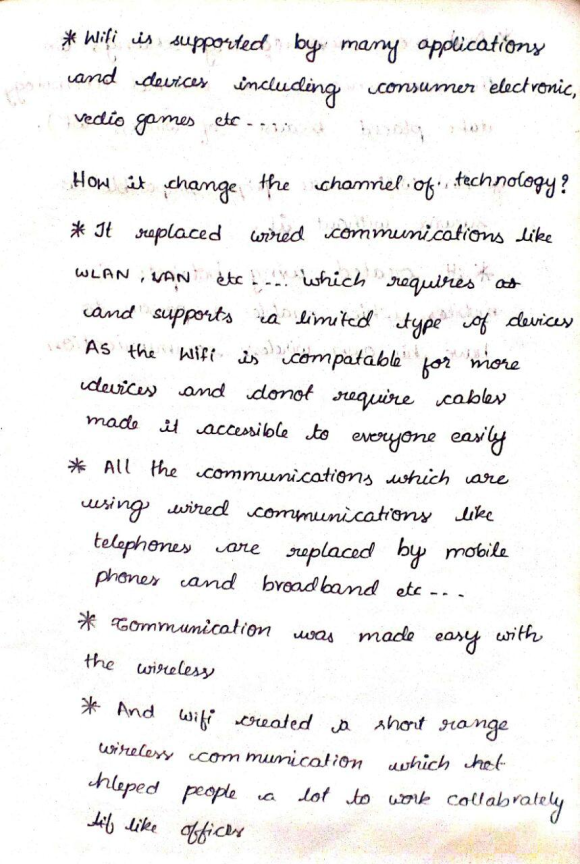 * Wifi is supported by many applications
and devices including consumer electronic,
vedio games etc ....
How it change the channel of technology?
* It replaced wired communications like
WLAN, VAN etc .... which requires as
and supports a limited type of devices
As the Wifi is compatable for more
devices and donot require cables
made it accessible to everyone easily
* All the communications which are
using wired communications like
telephones are replaced by mobile
phones and broadband etc ---
* Communication was made easy with
the wireless
* And wifi created a short range
wireless communication which hel
hleped people a lot to work collabrately
lif like offices